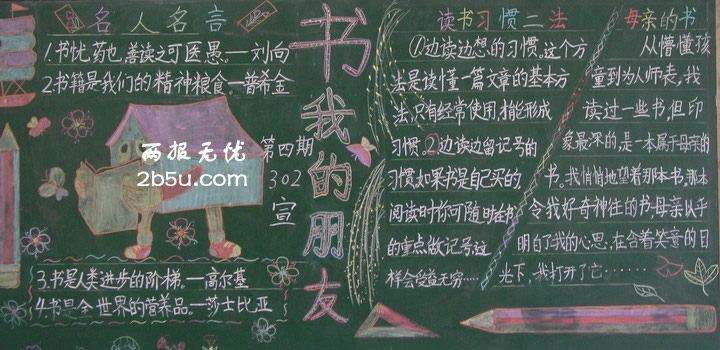 名人名言
1.书忧药也,善读之可医愚。—刘向
2.书籍是我们的精神粮食—普希金
两报无忧
2b5u.com
3.书是人类进步的阶梯。—高尔基
4.书是全世界的营养品。—莎士比亚
第四期
302
宣
书我的朋友
读书习惯二法
①边读边想的习惯。这个方
法是读懂一篇文章的基本方
法,只有经常使用,才能形成
习惯.②边读边留记号的
习惯,如果书是自己买的
阅读时你可随时在书
的重点做记号,这
样会受益无穷……
母亲的书
从懵懂孩
童到为人师走,我
读过一些书,但印
象最深的,是一本属于母亲的
书。我悄悄地望着那本书,那本
令我好奇神往的书,母亲似乎
明白了我的心思,在含着笑意的目
光下,我打开了它……